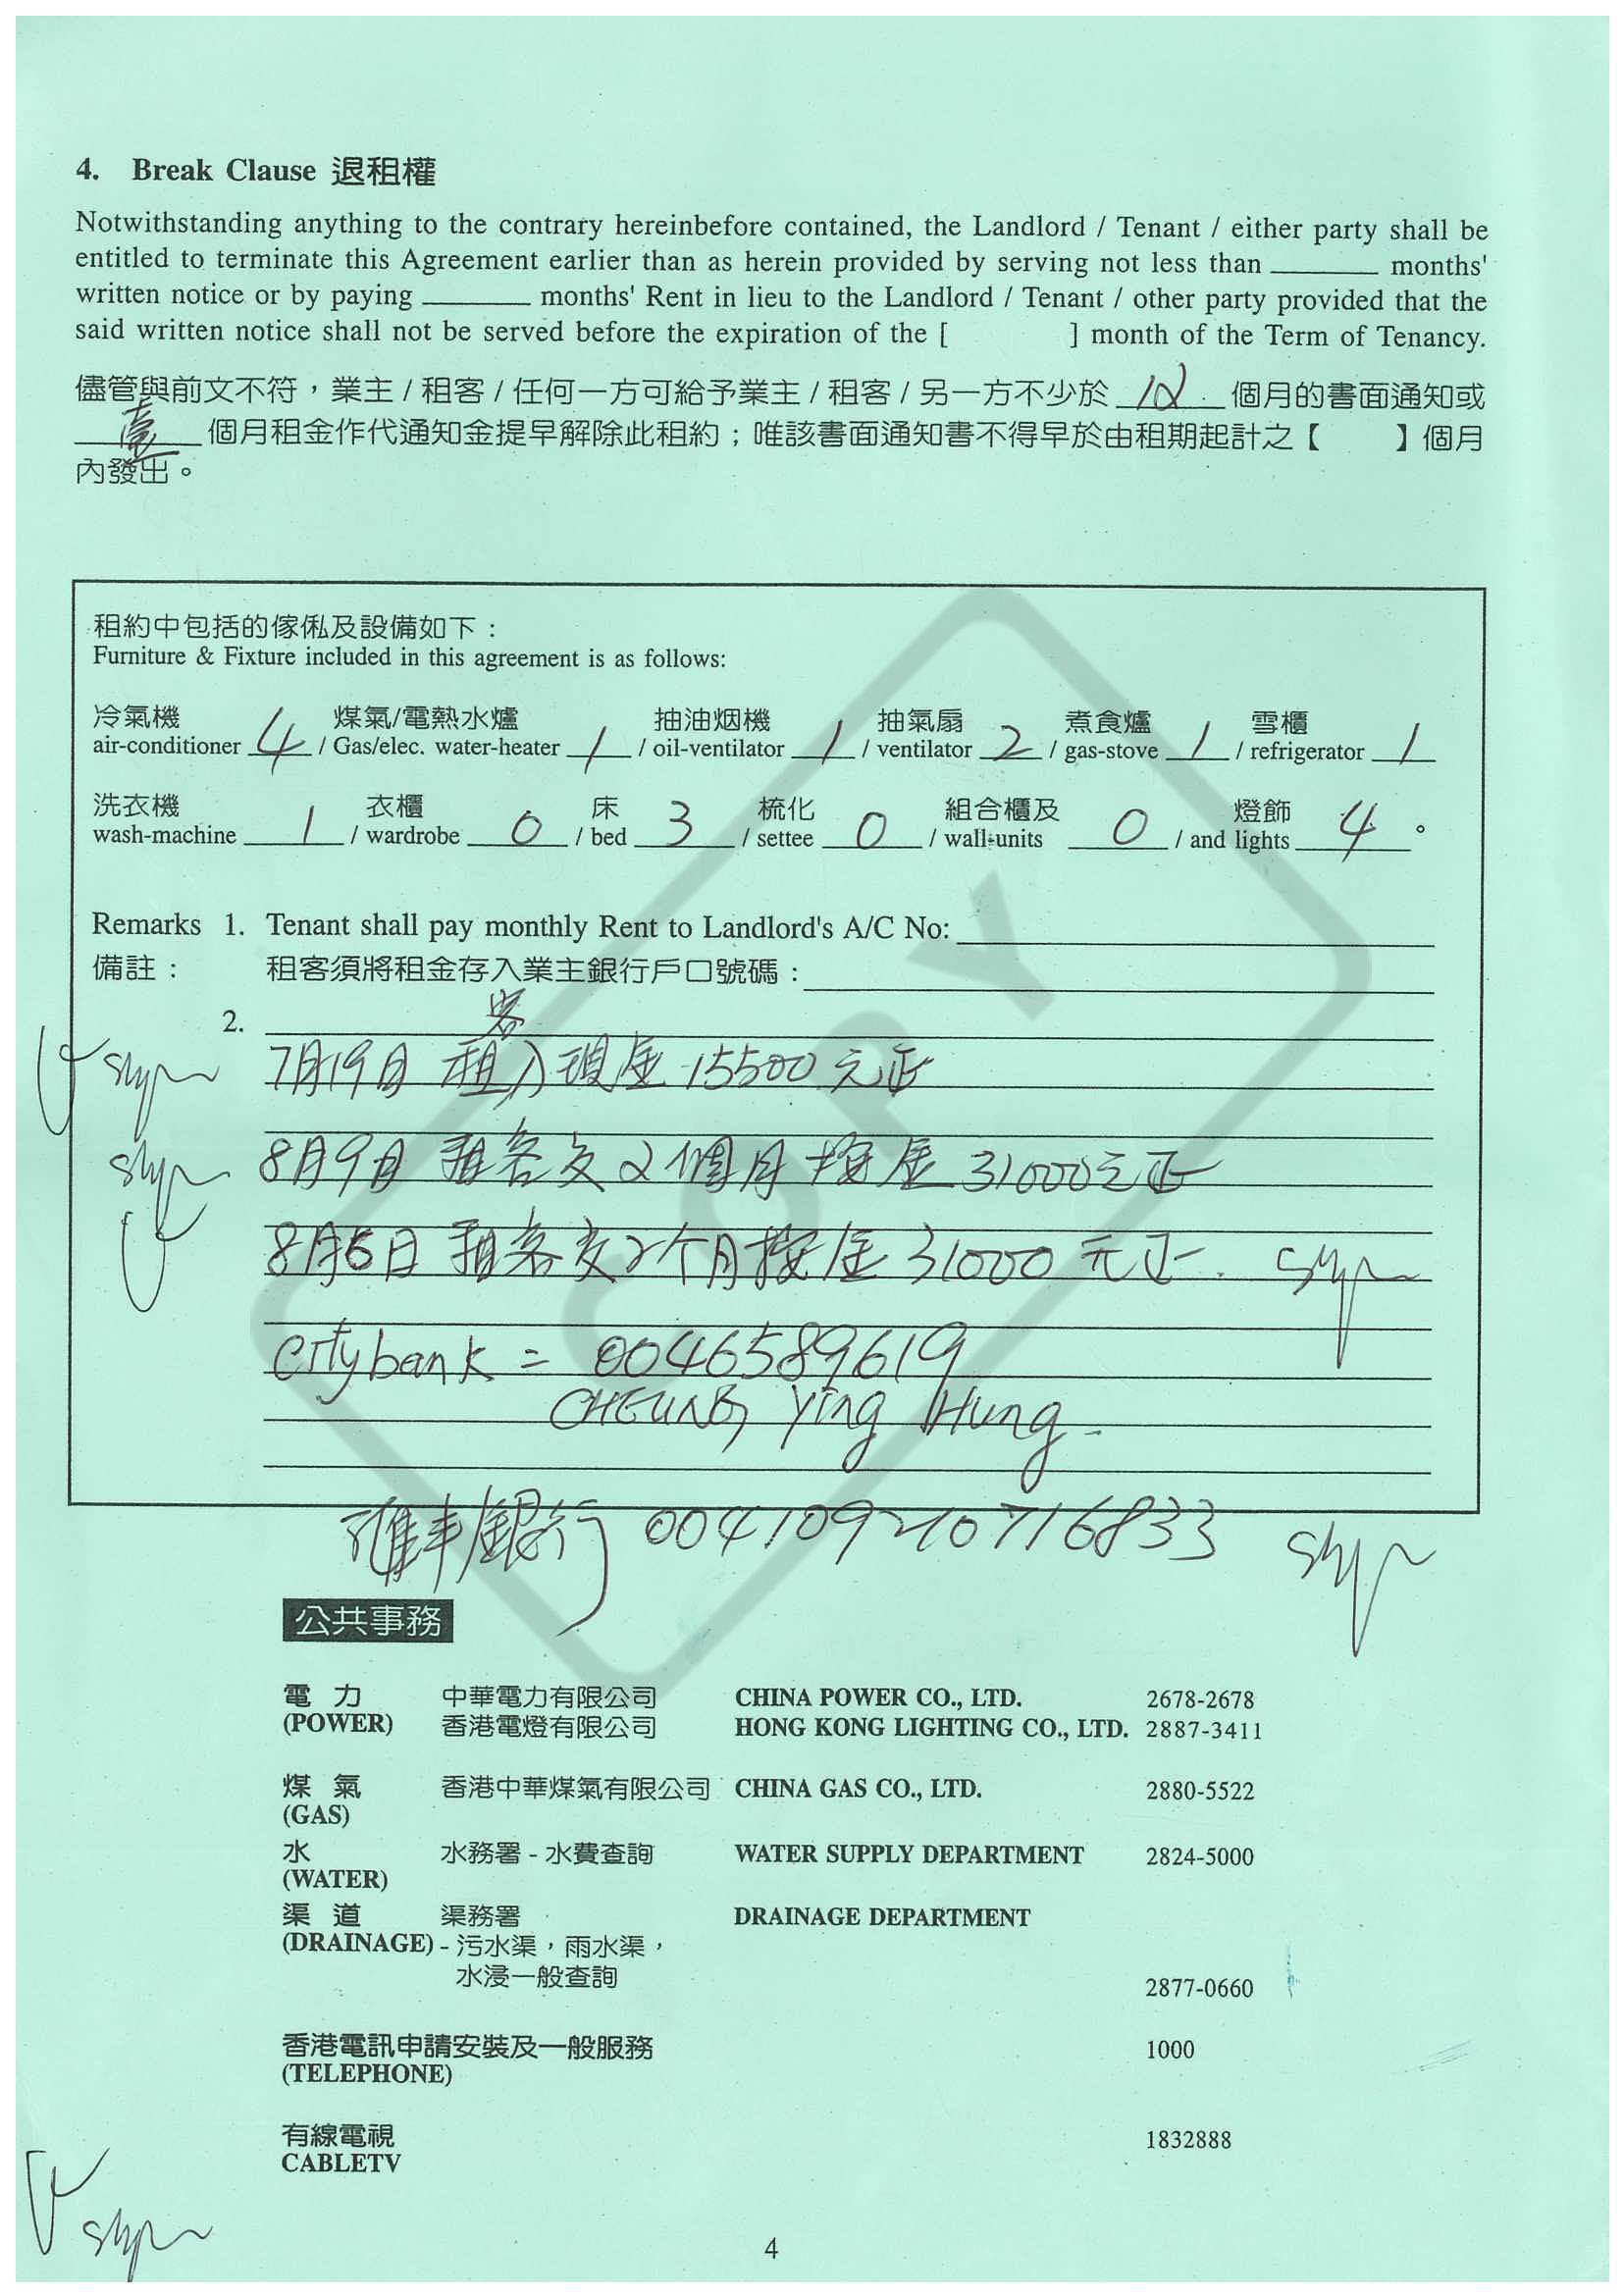 4. Break Clause 退租權
Notwithstanding anything to the contrary hereinbefore contained, the Landlord / Tenant / either party shall be
entitled to terminate this Agreement earlier than as herein provided by serving not less than ______ months'
written notice or by paying ______ months' Rent in lieu to the Landlord / Tenant / other party provided that the
said written notice shall not be served before the expiration of the [ ] month of the Term of Tenancy.
儘管與前文不符，業主 / 租客 / 任何一方可給予業主 / 租客 / 另一方不少於 12 個月的書面通知或
壹 個月租金作代通知金提早解除此租約；唯該書面通知書不得早於由租期起計之【 】個月
內發出。
租約中包括的傢俬及設備如下：
Furniture & Fixture included in this agreement is as follows:
冷氣機 煤氣/電熱水爐 抽油烟機 抽氣扇 煮食爐 雪櫃
air-conditioner 4 / Gas/elec. water-heater 1 / oil-ventilator 1 / ventilator 2 / gas-stove 1 / refrigerator 1
洗衣機 衣櫃 床 梳化 組合櫃及 燈飾
wash-machine 1 / wardrobe 0 / bed 3 / settee 0 / wall-units 0 / and lights 4 。
Remarks 1. Tenant shall pay monthly Rent to Landlord's A/C No:
備註： 租客須將租金存入業主銀行戶口號碼：
2.
客
7月19日 租入現金 15500 元正
8月9日 租客交2個月按金 31000元正
8月6日 租客交2个月按金 31000 元正.
Citybank = 0046589619
CHEUNG Ying Hung.
匯丰銀行 004109210716833
COPY
公共事務
電 力 中華電力有限公司 CHINA POWER CO., LTD. 2678-2678
(POWER) 香港電燈有限公司 HONG KONG LIGHTING CO., LTD. 2887-3411
煤 氣 香港中華煤氣有限公司 CHINA GAS CO., LTD. 2880-5522
(GAS)
水 水務署 - 水費查詢 WATER SUPPLY DEPARTMENT 2824-5000
(WATER)
渠 道 渠務署 DRAINAGE DEPARTMENT
(DRAINAGE) - 污水渠，雨水渠，
水浸一般查詢 2877-0660
香港電訊申請安裝及一般服務 1000
(TELEPHONE)
有線電視 1832888
CABLETV
4